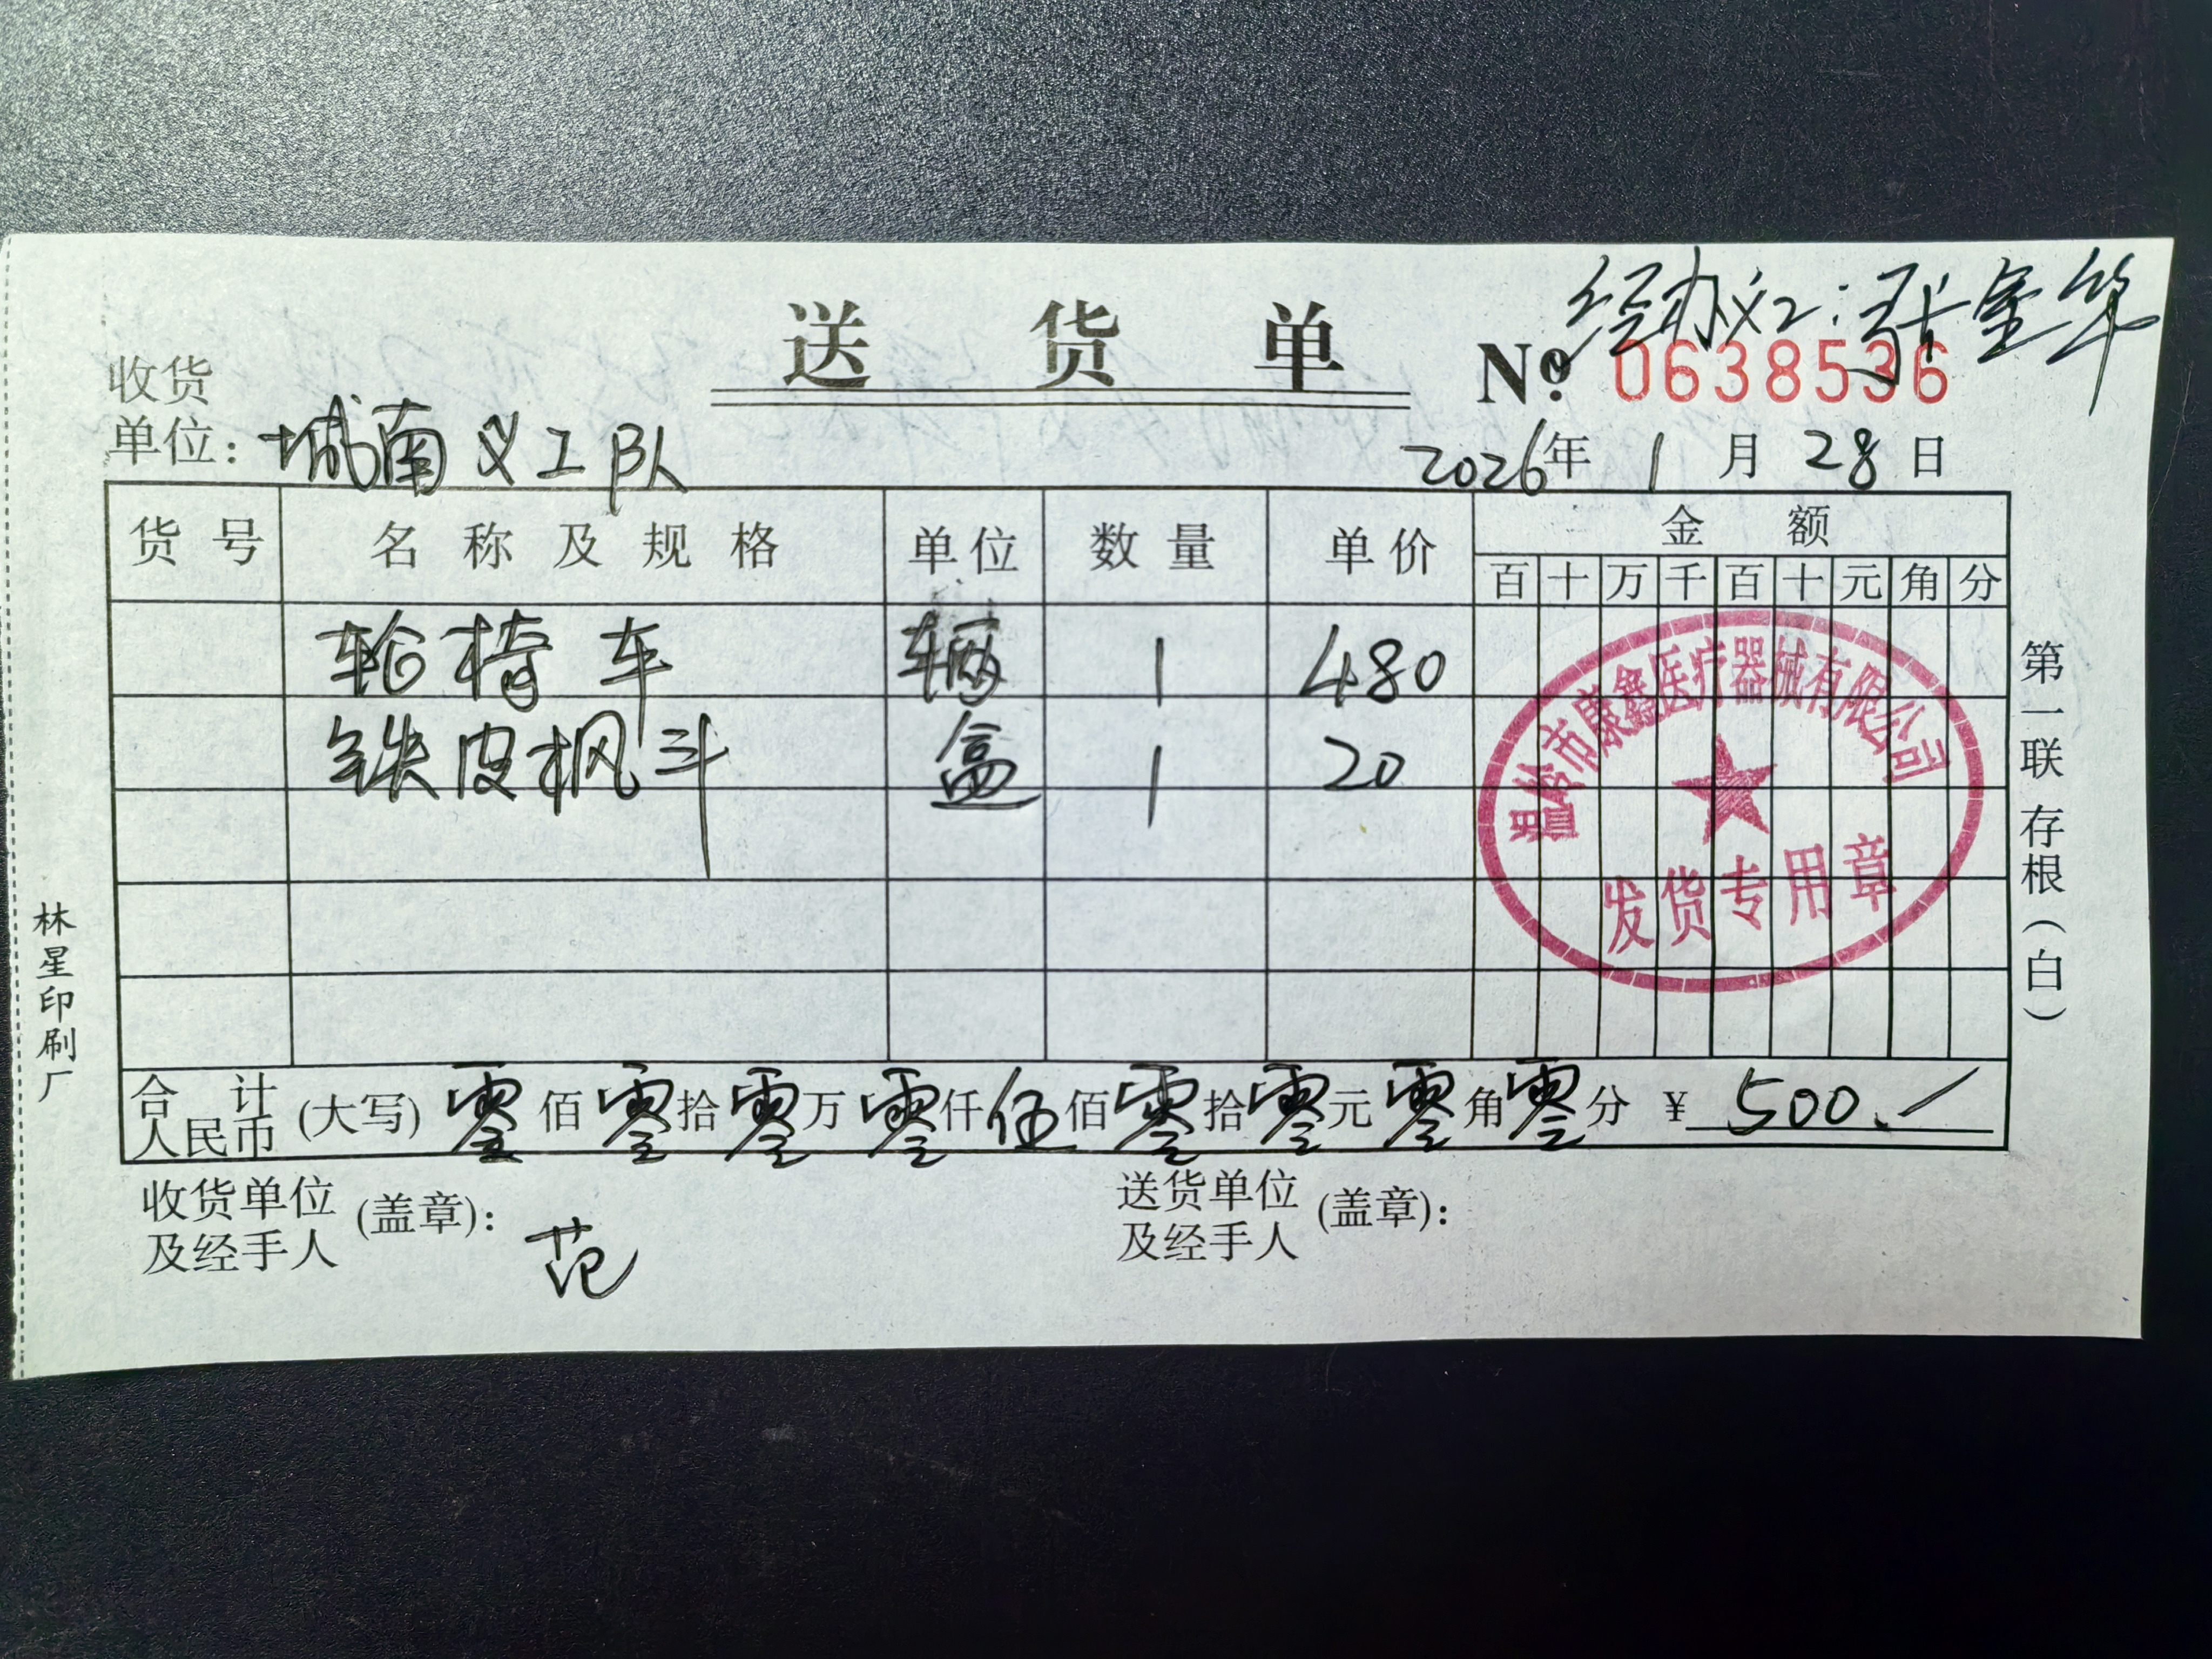 经办义工:张金华
送 货 单
No. 0638536
收货
单位: 城南义工队
2026年 1 月 28 日
货 号 名 称 及 规 格 单位 数 量 单价 金 额
百 十 万 千 百 十 元 角 分
轮椅车 辆 1 480
铁皮枫斗 盒 1 20
温岭市康鑫医疗器械有限公司
发货专用章
合 计
人民币 (大写) 零佰零拾零万零仟伍佰零拾零元零角零分 ¥ 500.
收货单位
及经手人 (盖章): 范
送货单位
及经手人 (盖章):
第一联 存根(白)
林星印刷厂